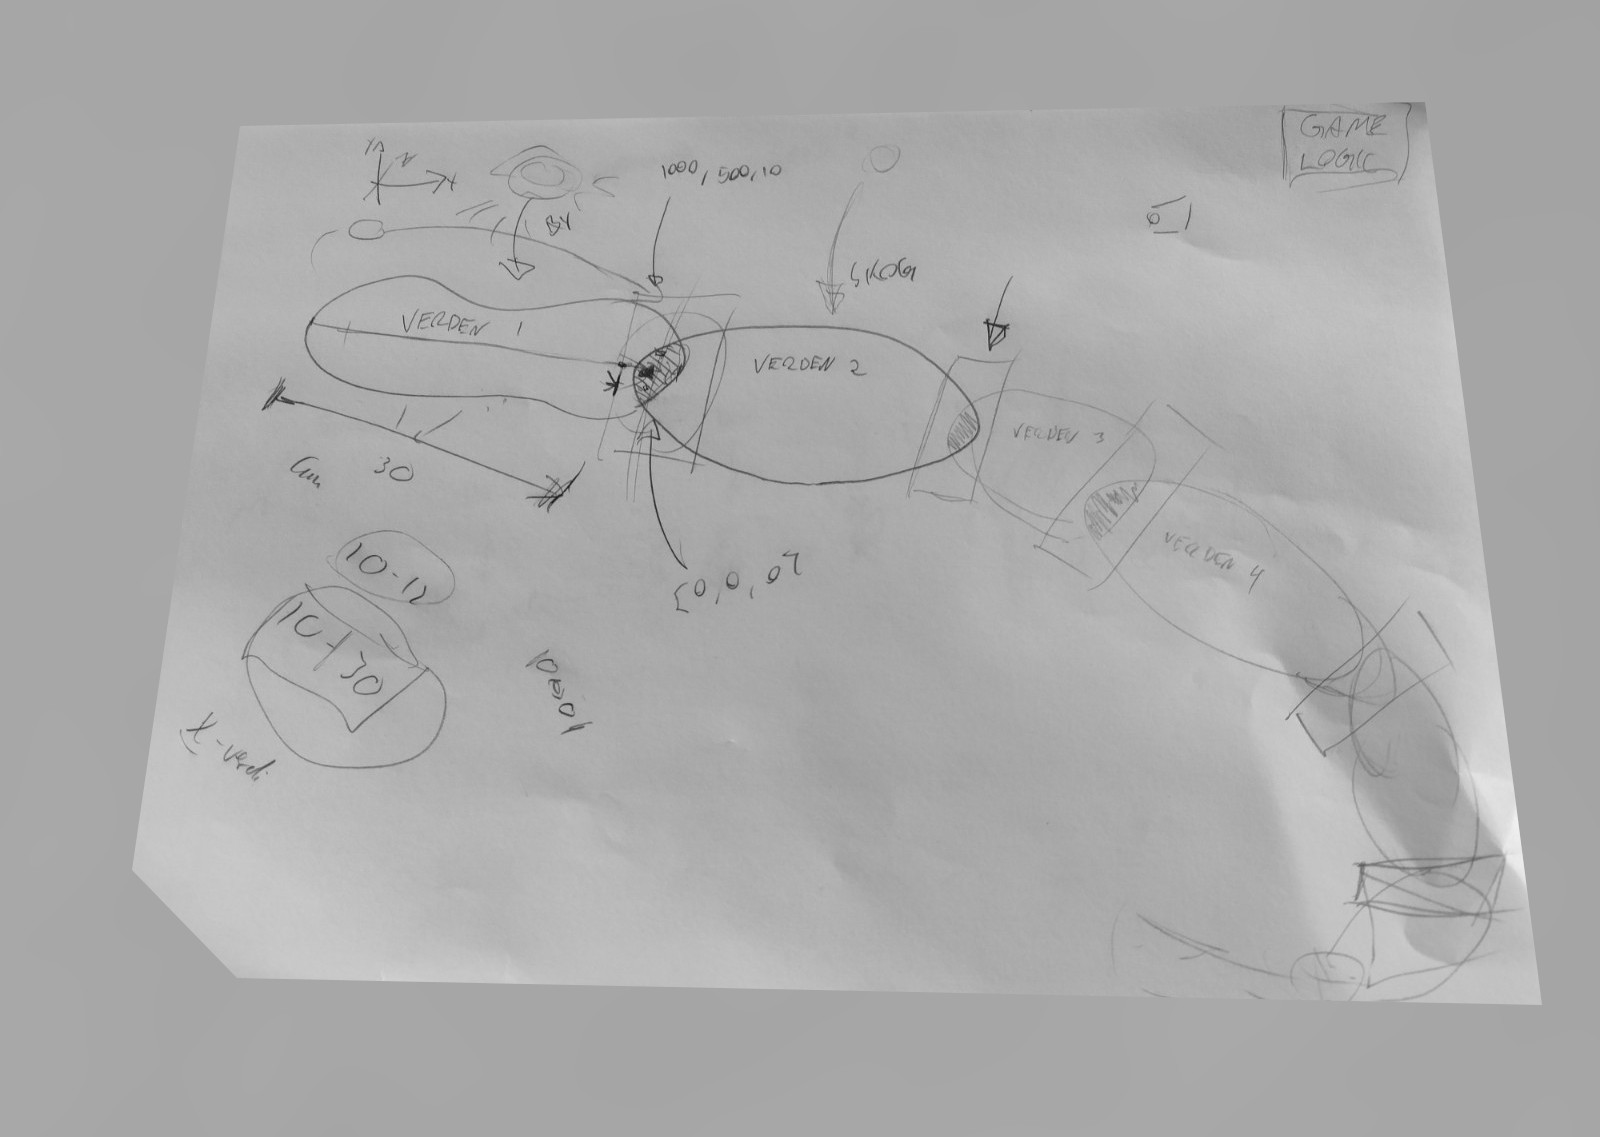 GAME
LOGIC
Y
Z
X
1000, 500, 10
BY
SKOG
VERDEN 1
VERDEN 2
VERDEN 3
VERDEN 4
30
{0, 0, 0}
10-12
10+30
X-verdi